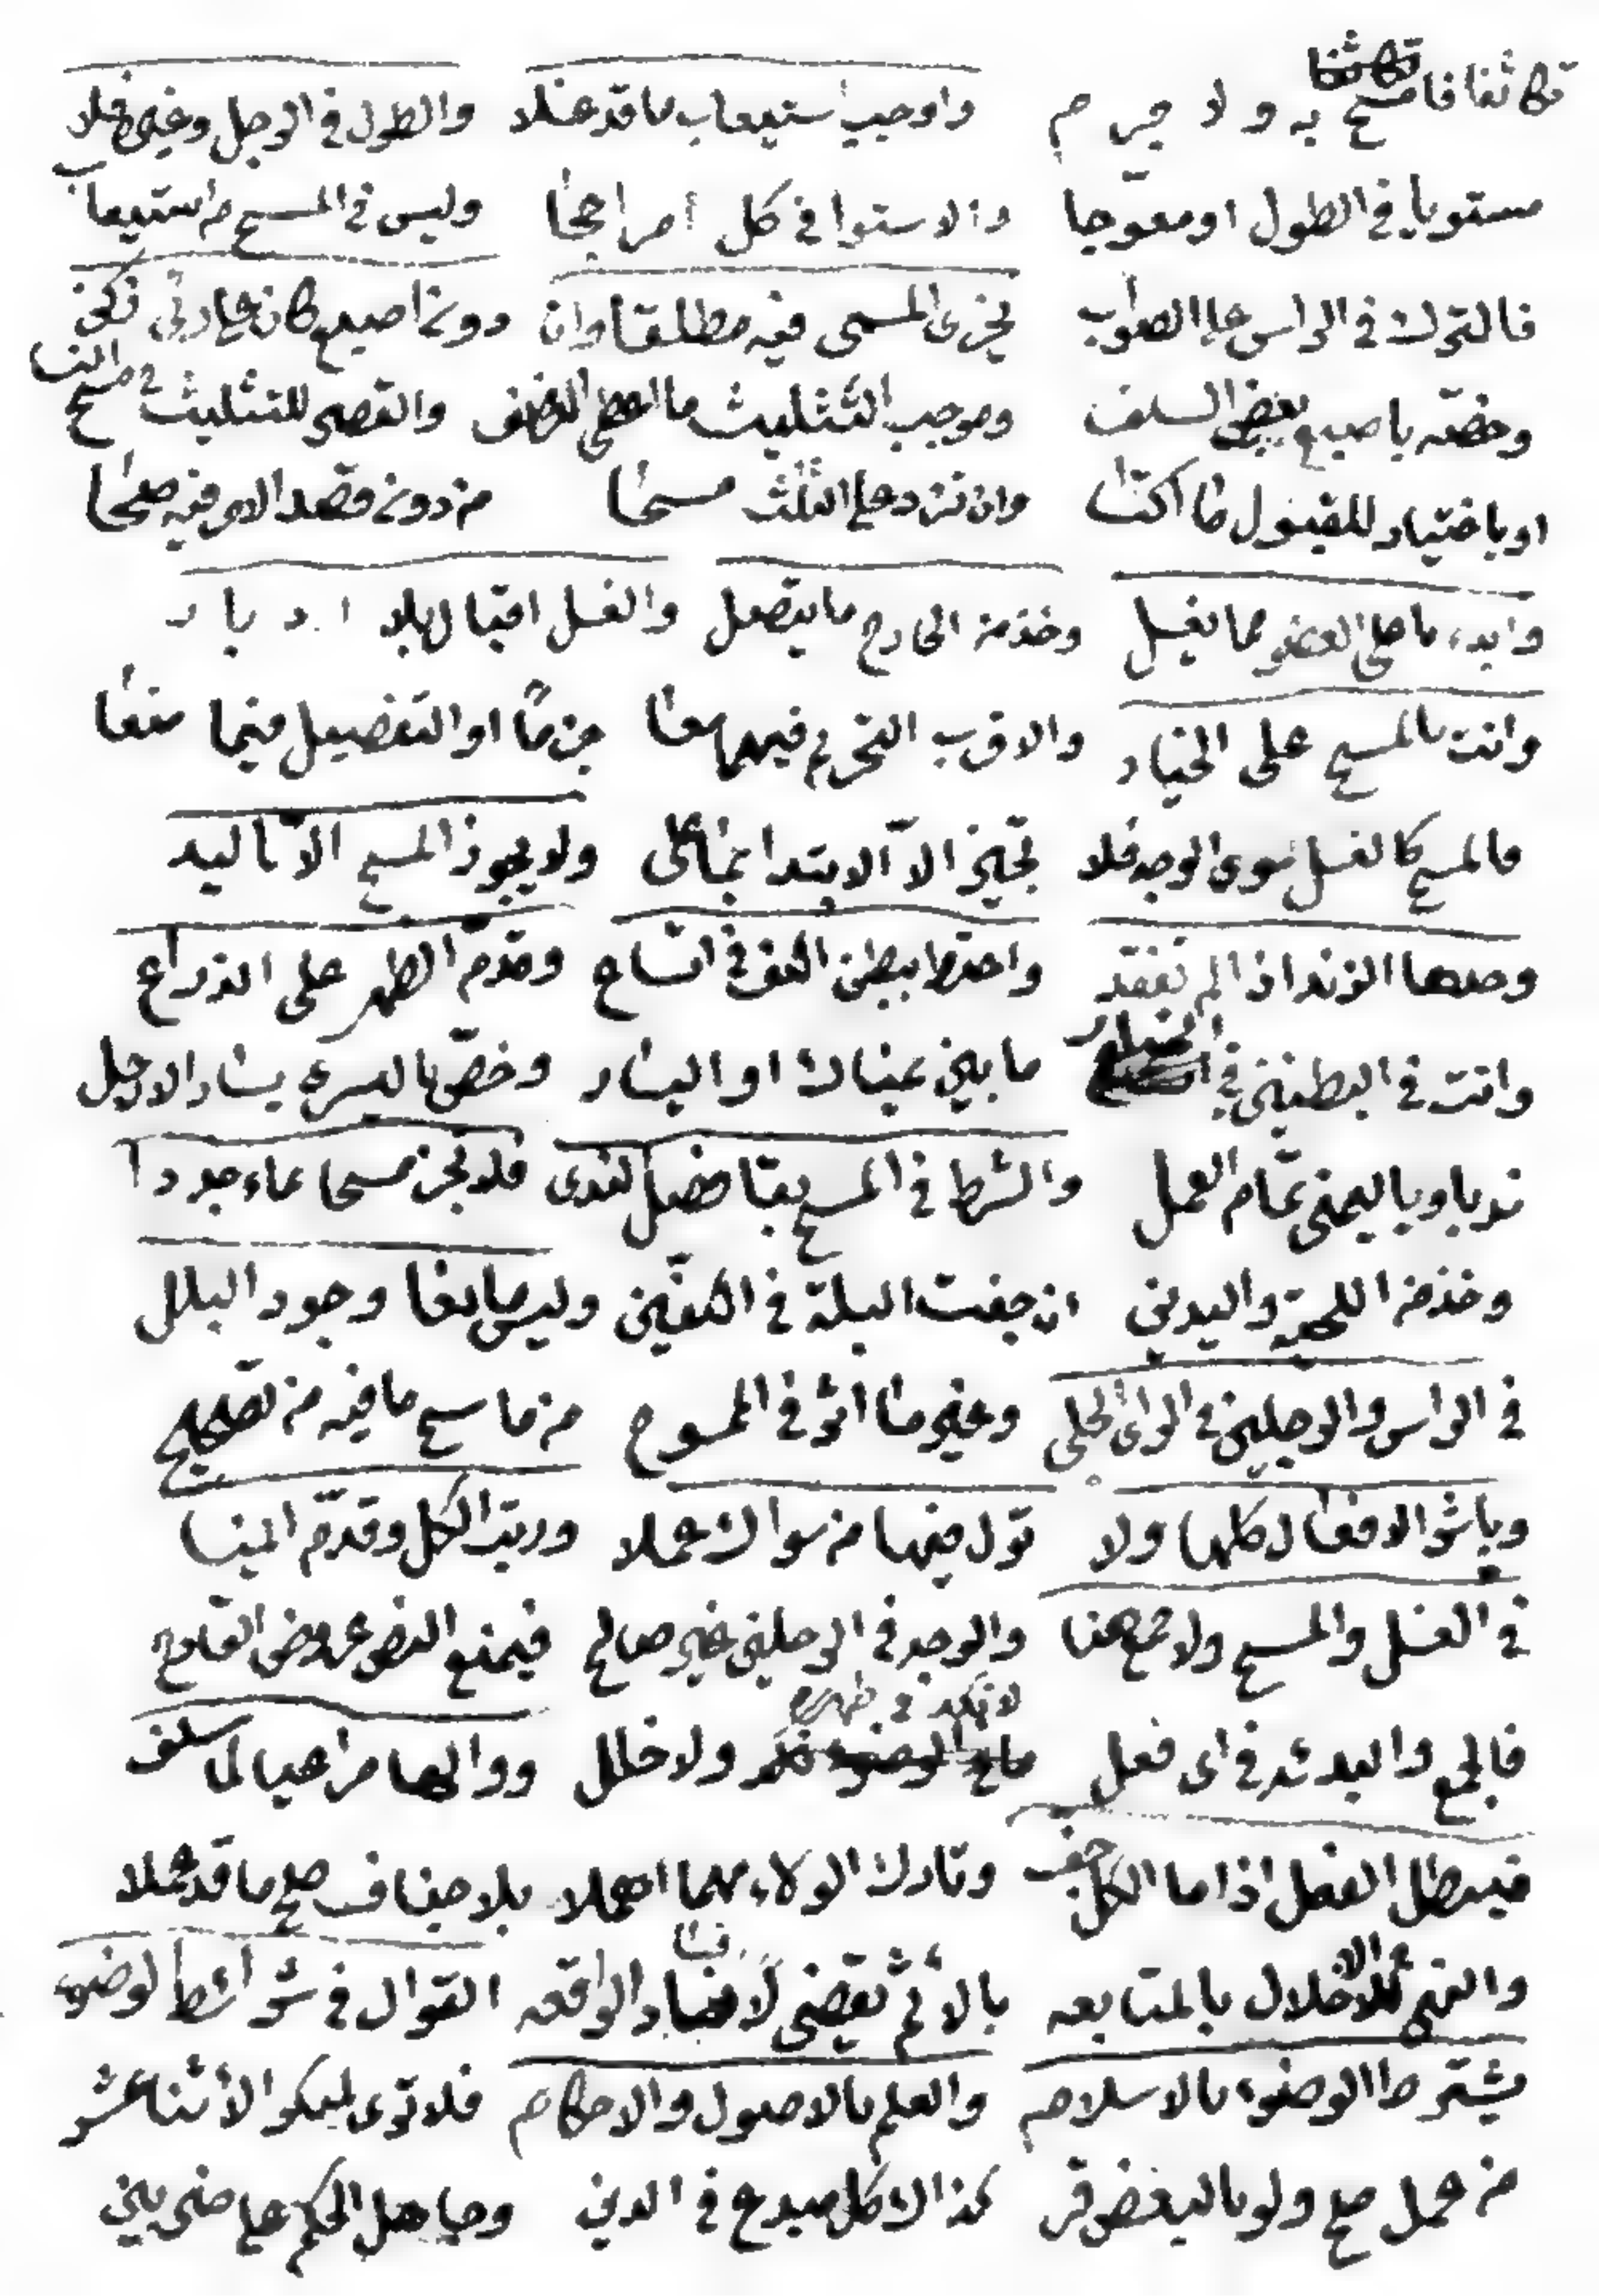 تكاثفا فامسح به ولا جرم واوجب استيعاب ما قد غسلا والطول في الرجل وغيره فلا
مستويا في الطول او معوجا والاستوا في كل أمر احجا وليس في المسح من استيعاب
فالترك في الراس على الصواب يجزى المسمى فيه مطلقا وان دون اصبع كان على ادنى زكن
وخصه باصبع بعض السلف وموجب التثليث ما اعطى النصف والقصر للتثليث في مسح النسا
او باختيار للمقبول ما اكتسا وان تزد على الثلث مسحا من دون قصد الامر فيه صلحا
وابدء باعلى العضو مما يغسل وخذ من الخارج ما يتصل والغسل اقبال بلا ادبار
وانت بالمسح على الخيار والاقرب التحريم فيهما معا جزما او التفصيل فيما منعا
فالمسح كالغسل سوى الوجه فلا تجيز الا الابتدا بما على ولا يجوز المسح الا باليد
وحدها الزند اذا لم تفقد واحتط ببطن الكف في اتساع وقدم الظهر على الذراع
وانت في البطنين في الخيار ما بين يمناك او اليسار وخص باليسرى يسار الارجل
ندبا وباليمنى تمام العمل والشرط في المسح بقا فضل الندى فلا تجز مسحا بماء جددا
وخذ من اللحية واليدين ان جفت البلة في الكفين وليس مانعا وجود البلل
في الراس والرجلين في الراى الجلى وغير ما اثر في الممسوح من ماسح ما فيه من تصحيح
وباشر الافعال كلها ولا تول فيها من سواك عملا ورتب الكل وقدم اليمنا
في الغسل والمسح ولا جمع هنا والوجه في الرجلين غير صالح فيمنع النص عروض القادح
فالجمع والبدئة في اى فعل لا تكره في ولا خلل ووالها مراعيا لما سلف
فيبطل الفعل اذا ما الكل جف وتارك الولاء مهما اهملا بلا جفاف صح ما قد عملا
والنهى الاخلال بالمتابعه بالاثم تقضى لا فساد الواقعه القوال في شرائط الوضوء
يشترط الوضوء بالاسلام والعلم بالاصول والاحكام فلا ترى لمنكر الاثنا عشر
من عمل صح ولو بالبعض قر كذاك كل مبدع في الدين وجاهل الحكم على ضربين